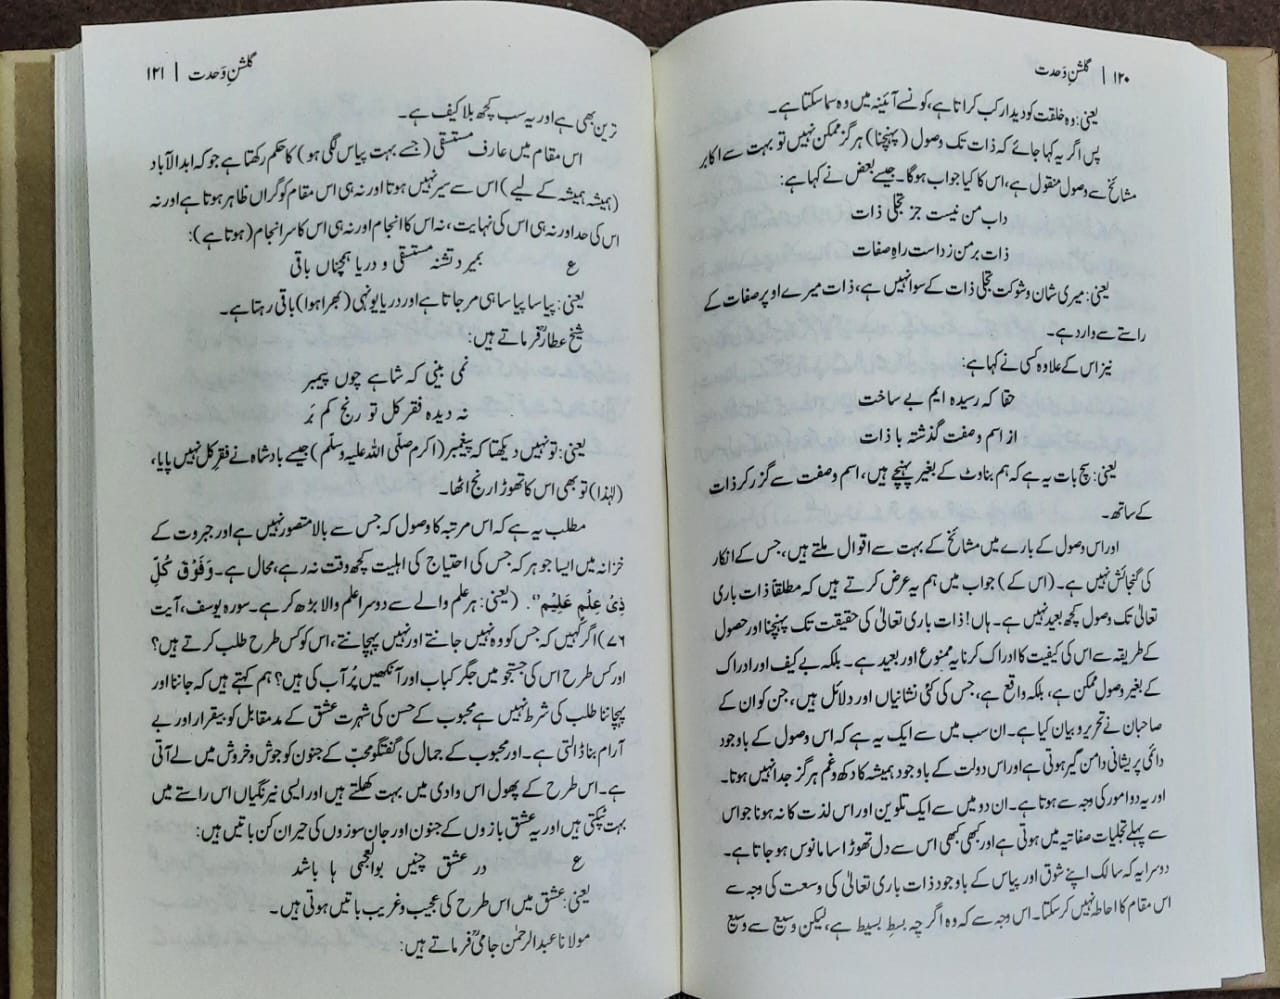 ۱۲۰ | گلشنِ وَحدت
یعنی: وہ خلقت کو دیدار کب کراتا ہے، کونسے آئینہ میں وہ سما سکتا ہے۔
پس اگر یہ کہا جائے کہ ذات تک وصول (پہنچنا) ہرگز ممکن نہیں تو بہت سے اکابر
مشائخ سے وصول منقول ہے، اس کا کیا جواب ہوگا۔ جیسے بعض نے کہا ہے:
داب من نیست جز تجلی ذات
ذات بر من زد است راہِ صفات
یعنی: میری شان و شوکت تجلی ذات کے سوا نہیں ہے، ذات میرے اوپر صفات کے
راستے سے وارد ہے۔
نیز اس کے علاوہ کسی نے کہا ہے:
حقا کہ رسیدہ ایم بے ساخت
از اسم وصفت گذشتہ با ذات
یعنی: سچ بات یہ ہے کہ ہم بناوٹ کے بغیر پہنچے ہیں، اسم وصفت سے گزر کر ذات
کے ساتھ۔
اور اس وصول کے بارے میں مشائخ کے بہت سے اقوال ملتے ہیں، جس کے انکار
کی گنجائش نہیں ہے۔ (اس کے) جواب میں ہم یہ عرض کرتے ہیں کہ مطلقاً ذات باری
تعالیٰ تک وصول کچھ بعید نہیں ہے۔ ہاں! ذات باری تعالیٰ کی حقیقت تک پہنچنا اور حصول
کے طریقہ سے اس کی کیفیت کا ادراک کرنا یہ ممنوع اور بعید ہے۔ بلکہ بے کیف اور ادراک
کے بغیر وصول ممکن ہے، بلکہ واقع ہے، جس کی کئی نشانیاں اور دلائل ہیں، جن کو ان کے
صاحبان نے تحریر و بیان کیا ہے۔ ان سب میں سے ایک یہ ہے کہ اس وصول کے باوجود
دائمی پریشانی دامن گیر ہوتی ہے اور اس دولت کے باوجود ہمیشہ کا دکھ وغم ہرگز جدا نہیں ہوتا۔
اور یہ دو امور کی وجہ سے ہوتا ہے۔ ان دو میں سے ایک تلوین اور اس لذت کا نہ ہونا جو اس
سے پہلے تجلیات صفاتیہ میں ہوتی ہے اور کبھی کبھی اس سے دل تھوڑا سا مانوس ہو جاتا ہے۔
دوسرا یہ کہ سالک اپنے شوق اور پیاس کے باوجود ذات باری تعالیٰ کی وسعت کی وجہ سے
اس مقام کا احاطہ نہیں کر سکتا۔ اس وجہ سے کہ وہ اگرچہ بسطِ بسیط ہے، لیکن وسیع سے وسیع
گلشنِ وَحدت | ۱۲۱
ترین بھی ہے اور یہ سب کچھ بلا کیف ہے۔
اس مقام میں عارف مستسقی (جسے بہت پیاس لگی ہو) کا حکم رکھتا ہے جو کہ ابد الآباد
(ہمیشہ ہمیشہ کے لیے) اس سے سیر نہیں ہوتا اور نہ ہی اس مقام کو گراں ظاہر ہوتا ہے اور نہ
اس کی حد اور نہ ہی اس کی نہایت، نہ اس کا انجام اور نہ ہی اس کا سرانجام (ہوتا ہے):
ع بمیرد تشنہ مستسقی و دریا ہمچناں باقی
یعنی: پیاسا پیاسا ہی مر جاتا ہے اور دریا یونہی (بھرا ہوا) باقی رہتا ہے۔
شیخ عطارؒ فرماتے ہیں:
نمی بینی کہ شاہے چوں پیمبر
نہ دیدہ فقر کل تو رنج کم بَر
یعنی: تو نہیں دیکھتا کہ پیغمبر (اکرم صلّی اللہ علیہ وسلّم) جیسے بادشاہ نے فقرِ کل نہیں پایا،
(لہٰذا) تو بھی اس کا تھوڑا رنج اٹھا۔
مطلب یہ ہے کہ اس مرتبہ کا وصول کہ جس سے بالا متصور نہیں ہے اور جبروت کے
خزانہ میں ایسا جوہر کہ جس کی احتیاج کی اہلیت کچھ وقت نہ رہے، محال ہے۔ وَفَوْقَ کُلِّ
ذِیْ عِلْمٍ عَلِیْم"۔ (یعنی: ہر علم والے سے دوسرا علم والا بڑھ کر ہے۔ سورہ یوسف، آیت
۷۶) اگر کہیں کہ جس کو وہ نہیں جانتے اور نہیں پہچانتے، اس کو کس طرح طلب کرتے ہیں؟
اور کس طرح اس کی جستجو میں جگر کباب اور آنکھیں پُر آب کی ہیں؟ ہم کہتے ہیں کہ جاننا اور
پہچاننا طلب کی شرط نہیں ہے محبوب کے حسن کی شہرت عشق کے مدمقابل کو بیقرار اور بے
آرام بنا ڈالتی ہے۔ اور محبوب کے جمال کی گفتگو محبّت کے جنون کو جوش وخروش میں لے آتی
ہے۔ اس طرح کے پھول اس وادی میں بہت کھلتے ہیں اور ایسی نیرنگیاں اس راستے میں
بہت ٹپکتی ہیں اور یہ عشق بازوں کے جنون اور جان سوزوں کی حیران کن باتیں ہیں:
ع در عشق چنیں بوالعجبی ہا باشد
یعنی: عشق میں اس طرح کی عجیب وغریب باتیں ہوتی ہیں۔
مولانا عبدالرحمٰن جامیؒ فرماتے ہیں: